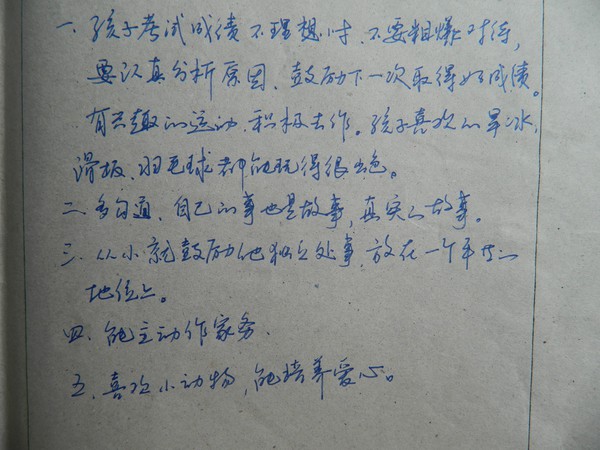 一、孩子考试成绩不理想时,不要粗爆对待,
要认真分析原因、鼓励下一次取得好成绩。
有兴趣的运动,积极去作。孩子喜欢的旱冰、
滑板、羽毛球都能玩得很出色。
二、多勾通,自己的事也是故事,真实的故事。
三、从小就鼓励他独立处事,放在一个平等的
地位上。
四、能主动作家务、
五、喜欢小动物,能培养爱心。